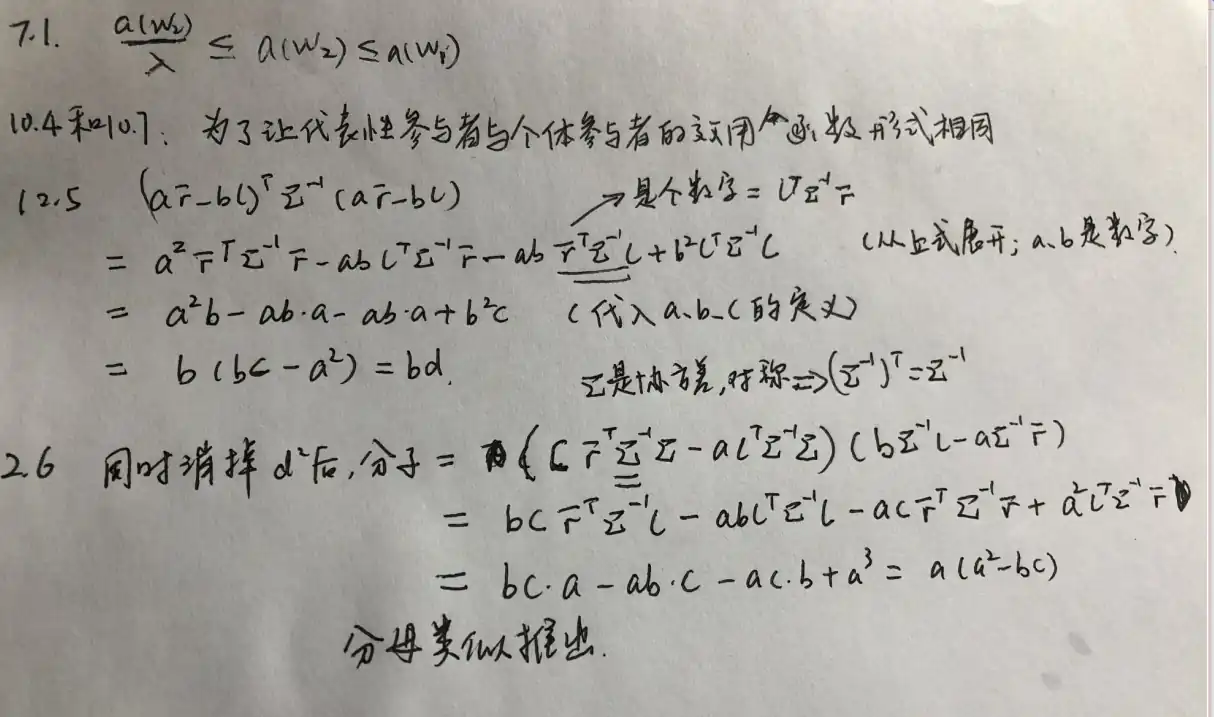 7.1. a(W₂)/λ ≤ a(W₂) ≤ a(W₁)
10.4和10.7: 为了让代表性参与者与个体参与者的效用函数形式相同
12.5 (ar̄-bl)ᵀΣ⁻¹(ar̄-bl) → 是个数字 = lᵀΣ⁻¹r̄
= a²r̄ᵀΣ⁻¹r̄ - ablᵀΣ⁻¹r̄ - abr̄ᵀΣ⁻¹l + b²lᵀΣ⁻¹l (从上式展开; a、b是数字)
= a²b - ab·a - ab·a + b²c (代入a、b、c的定义)
= b(bc - a²) = bd. Σ是协方差,对称⇒(Σ⁻¹)ᵀ=Σ⁻¹
2.6 同时消掉d²后,分子 = (cr̄ᵀΣ⁻¹Σ - alᵀΣ⁻¹Σ)(bΣ⁻¹l - aΣ⁻¹r̄)
= bcr̄ᵀΣ⁻¹l - ablᵀΣ⁻¹l - acr̄ᵀΣ⁻¹r̄ + a²lᵀΣ⁻¹r̄
= bc·a - ab·c - ac·b + a³ = a(a²-bc)
分母类似推出.